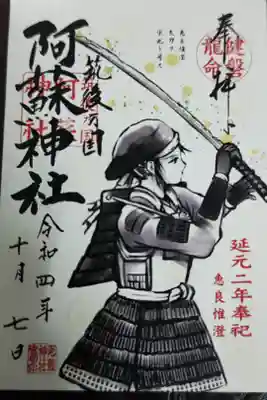 奉拝
健磐
龍命
筑後國
阿蘇神社
令和四年
十月
七日
延元二年奉祀
恵良惟澄